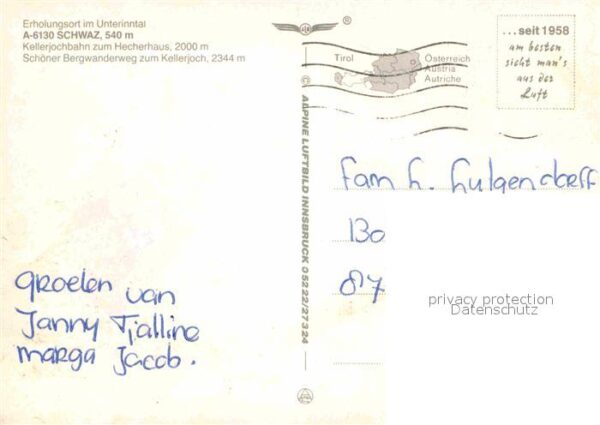 Erholungsort im Unterinntal
A-6130 SCHWAZ, 540 m
Kellerjochbahn zum Hecherhaus, 2000 m
Schöner Bergwanderweg zum Kellerjoch, 2344 m
©
Tirol
Österreich
Austria
Autriche
...seit 1958
am besten
sieht man's
aus der
Luft
© ALPINE LUFTBILD INNSBRUCK 05222/27324
Fam h.
130
87
groeten van
Janny Tjalline
marga Jacob.
privacy protection
Datenschutz